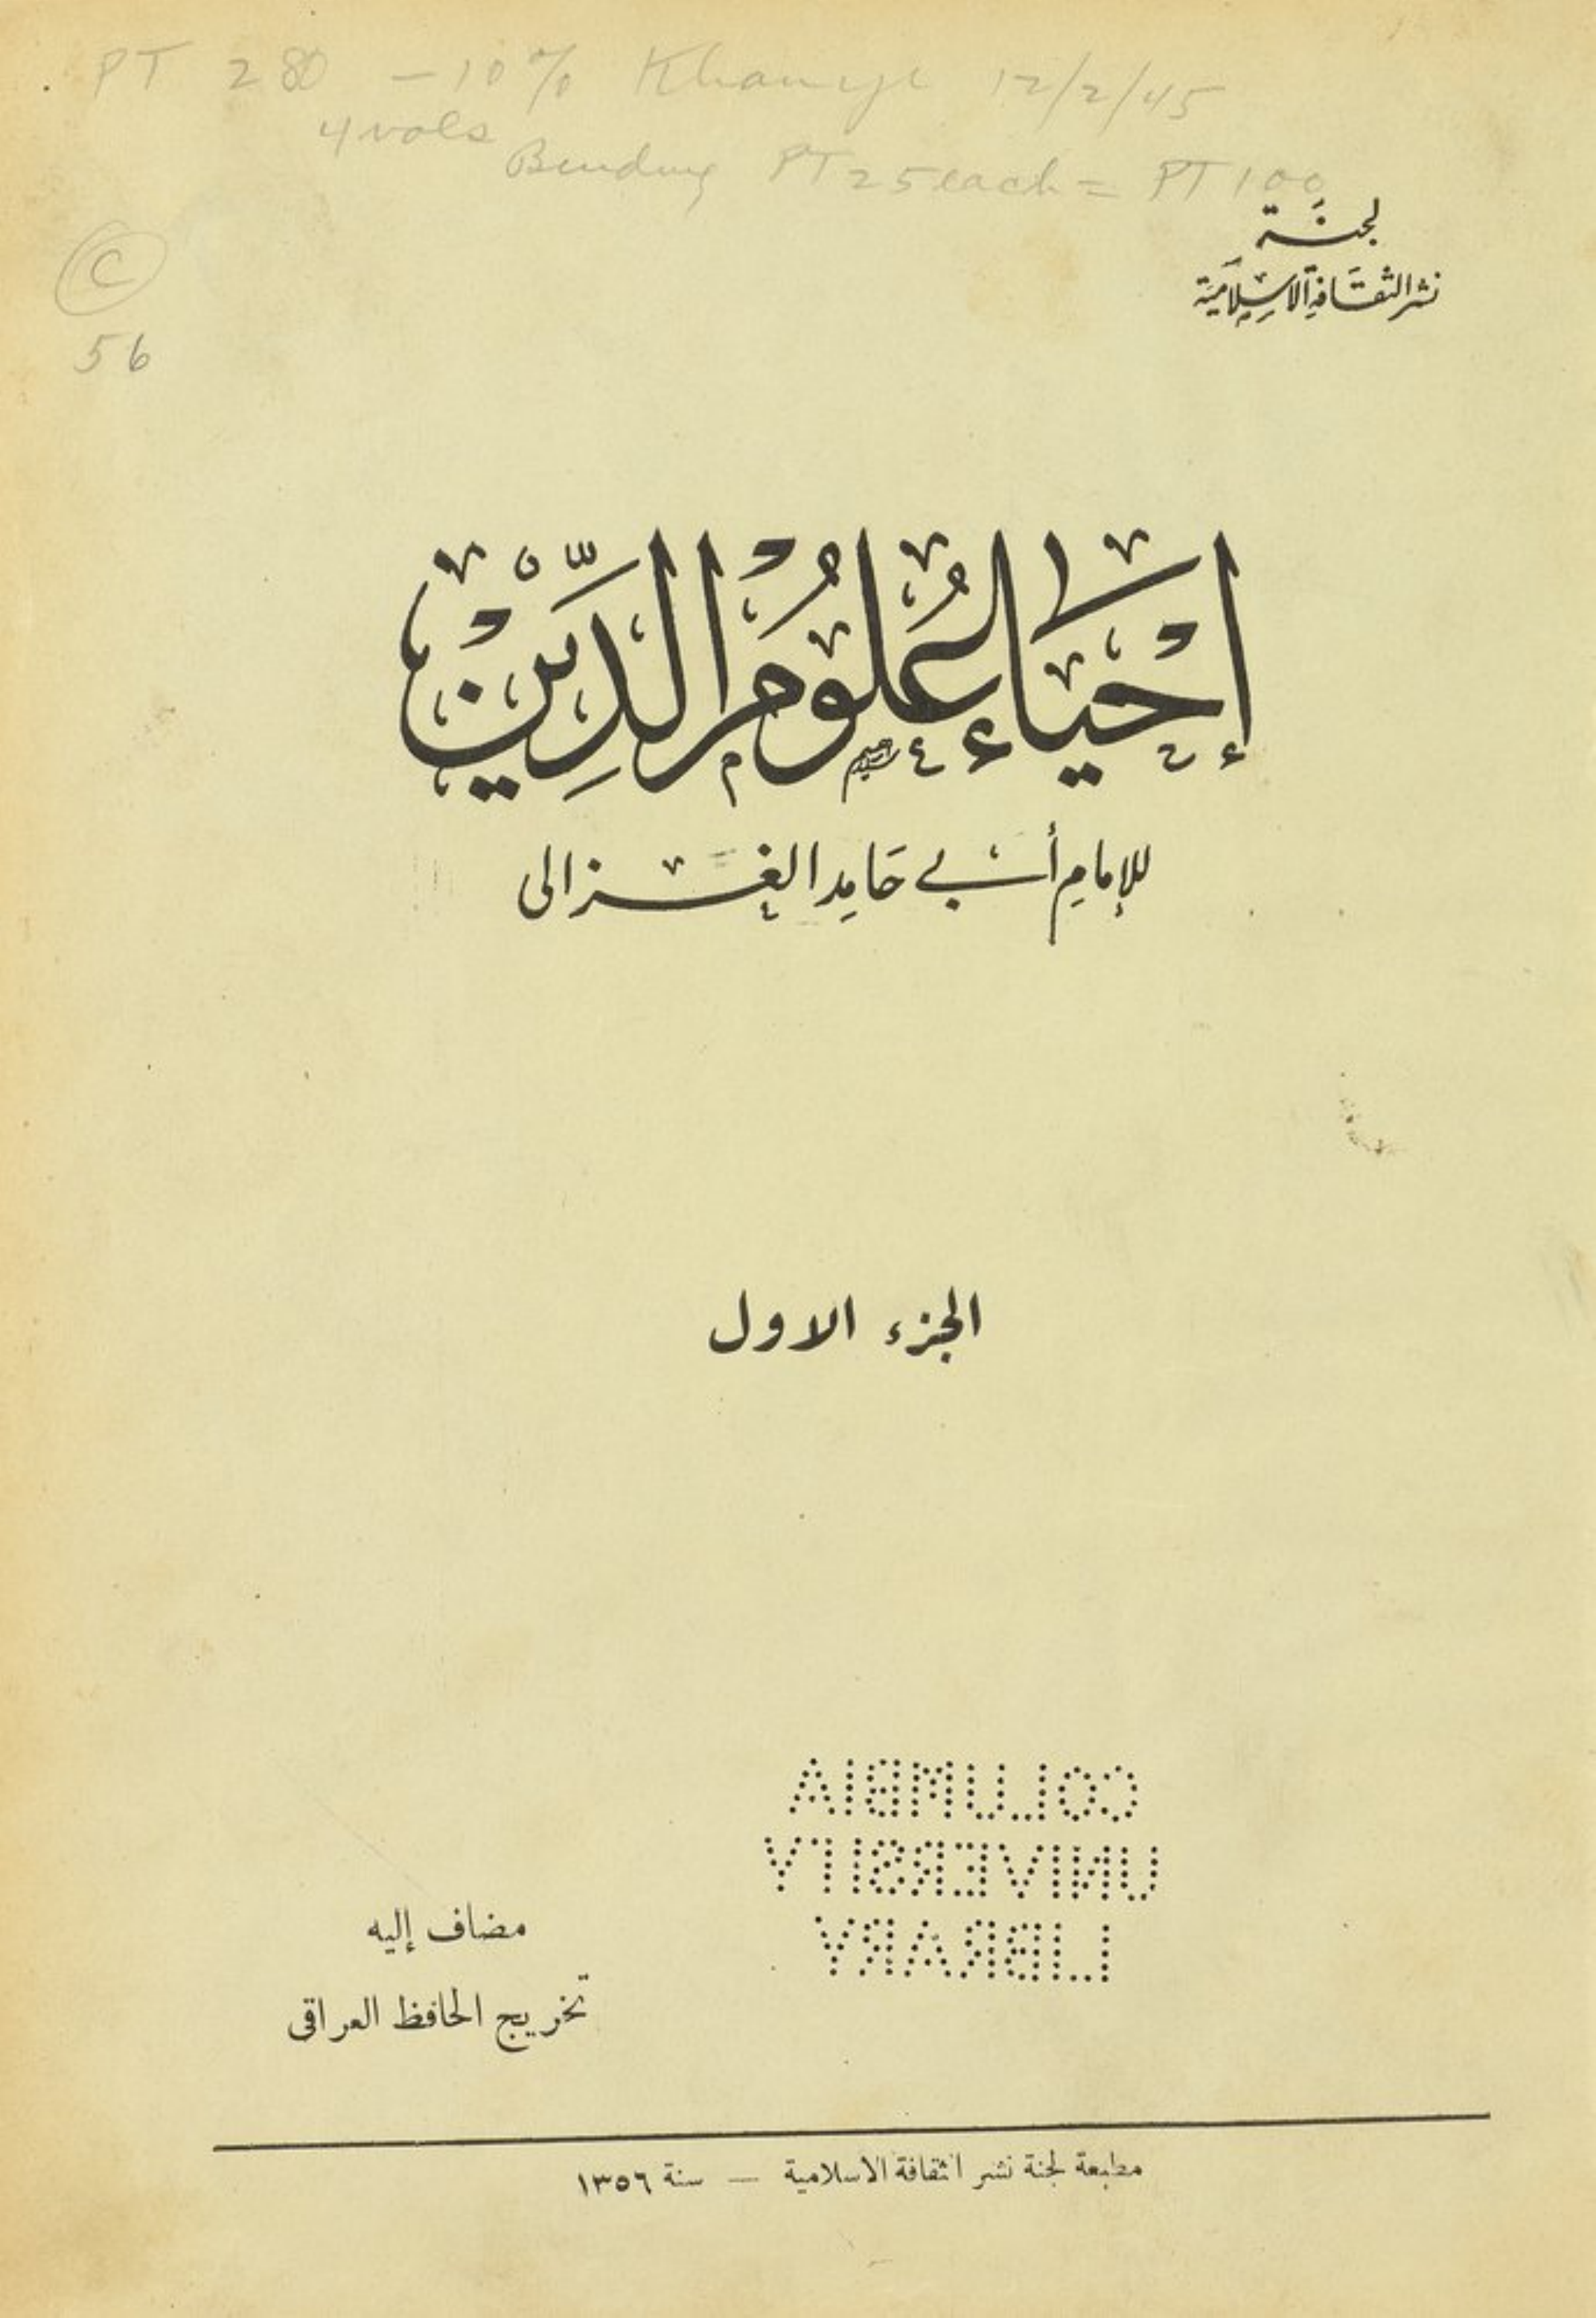 PT 280 - 10% Khanji 12/2/45
4 vols
Binding PT 25 each = PT 100
C
56
لجنة
نشر الثقافة الاسلامية
إحياء علوم الدين
للإمام أبي حامد الغزالى
الجزء الاول
COLUMBIA
UNIVERSITY
LIBRARY
مضاف إليه
تخريج الحافظ العراقى
مطبعة لجنة نشر الثقافة الاسلامية — سنة ١٣٥٦